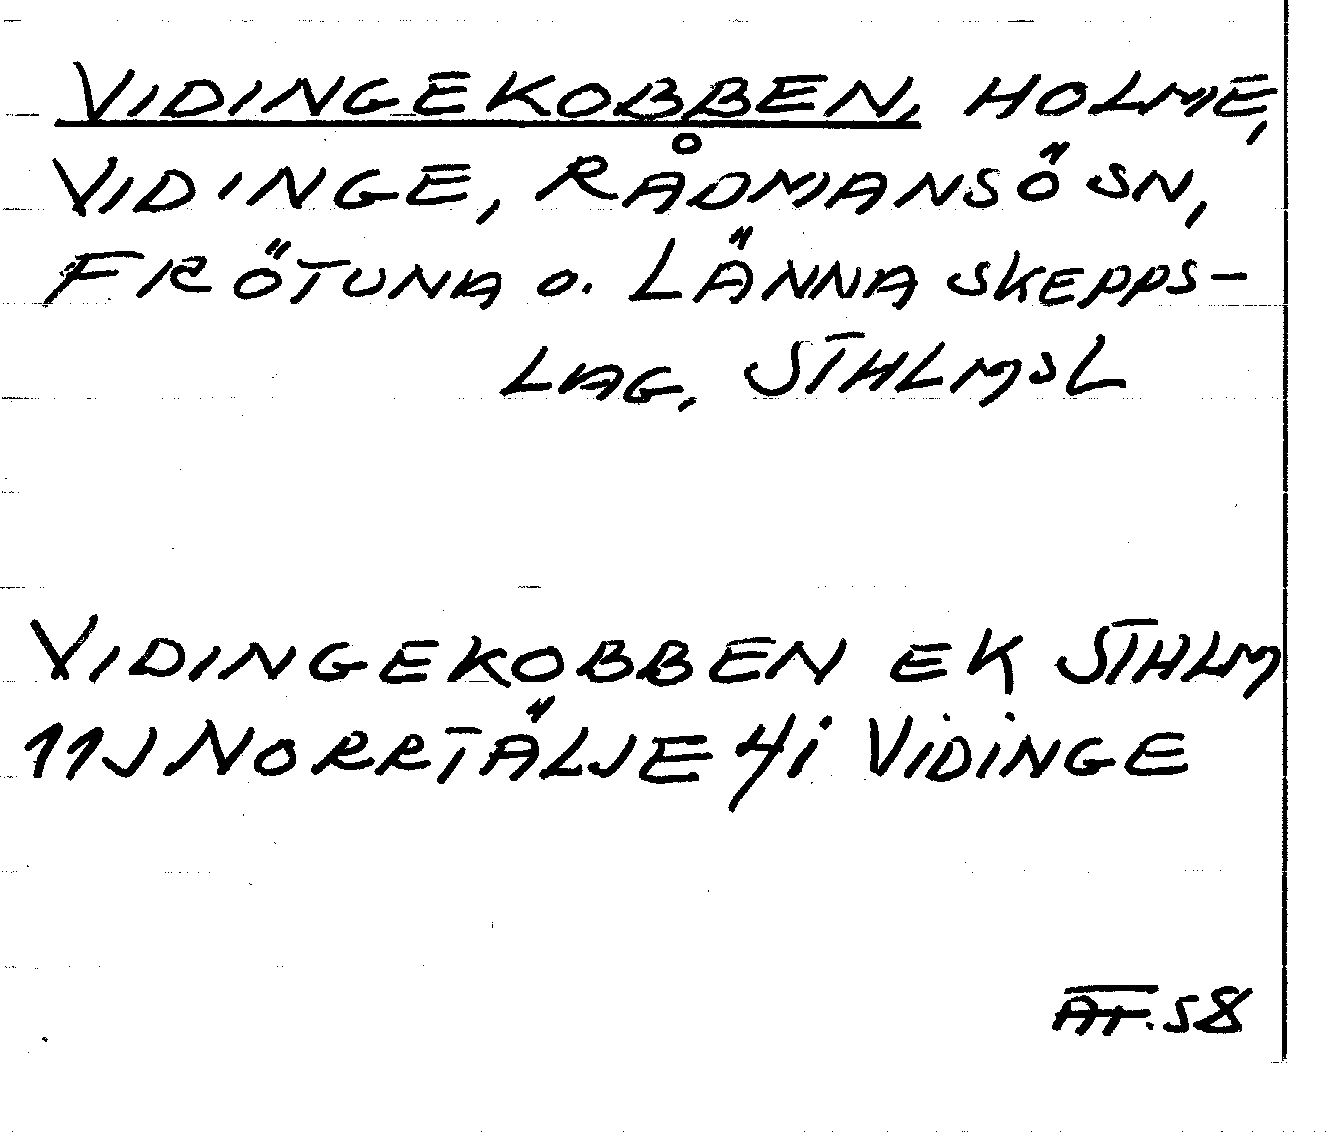 VIDINGEKOBBEN, HOLME,
VIDINGE, RÅDMANSÖ SN,
FRÖTUNA o. LÄNNA SKEPPS-
LAG, STHLMSL
VIDINGEKOBBEN EK STHLM
11J NORRTÄLJE 4i VIDINGE
AF. 58